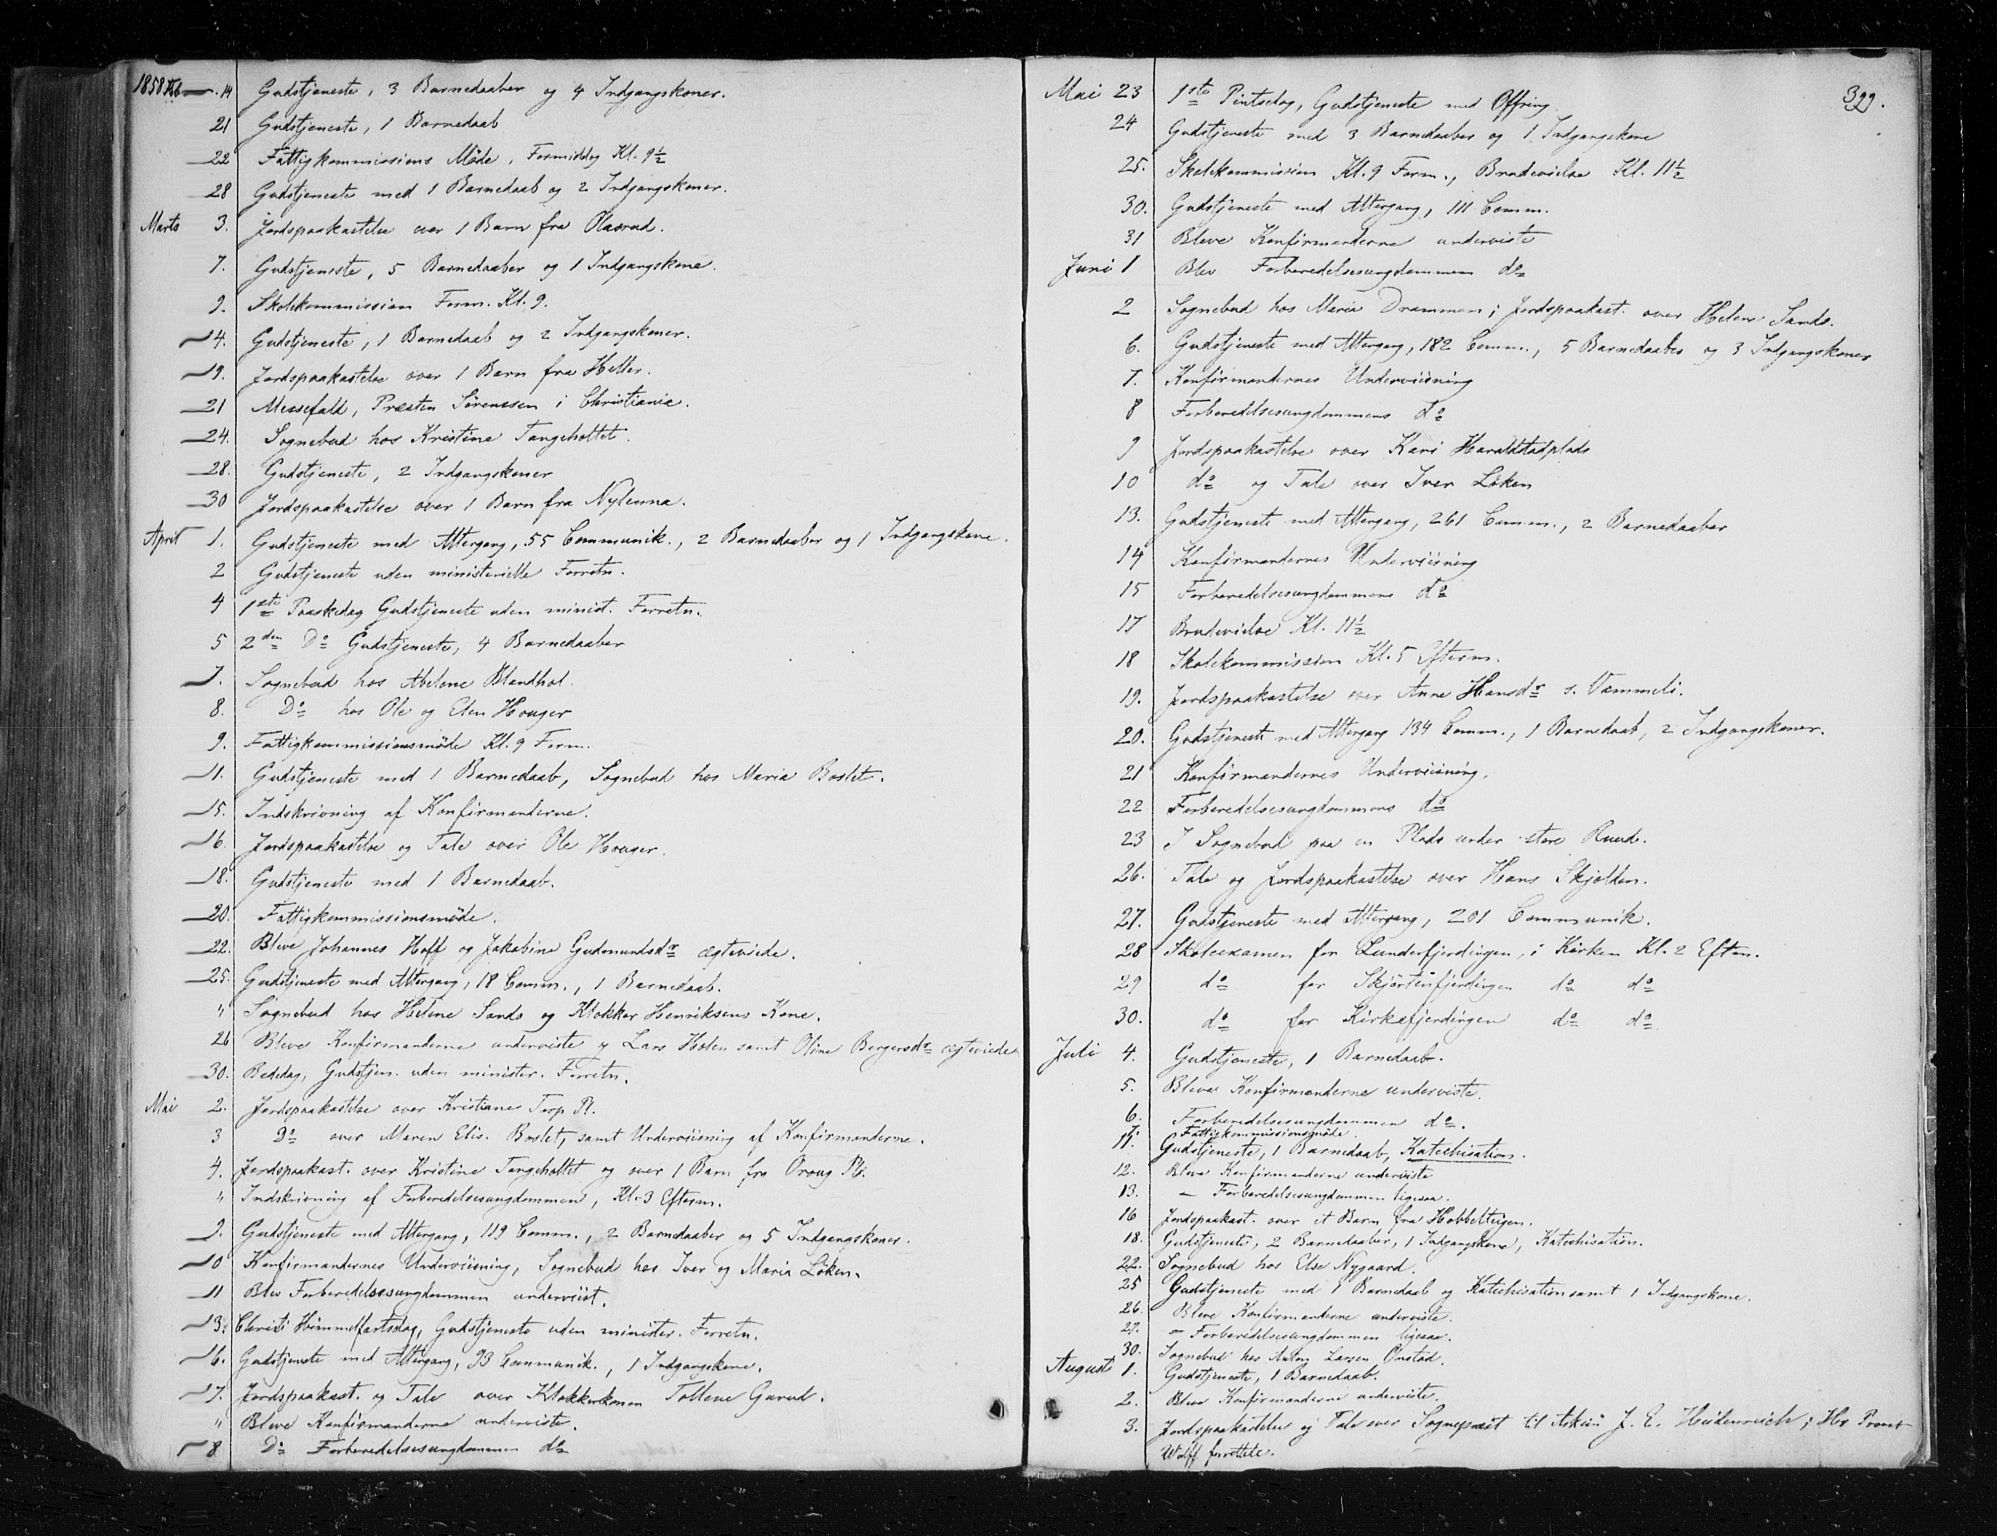 1858 Feb 14 Gudstjeneste, 3 Barnedaaber og 4 Indgangskoner.
21 Gudstjeneste, 1 Barnedaab
22 Fattigkommissions Möde, Formiddag Kl. 9½
28 Gudstjeneste med 1 Barnedaab og 2 Indgangskoner.
Marts 3. Jordspaakastelse over 1 Barn fra
7. Gudstjeneste, 5 Barnedaaber og 1 Indgangskone.
9. Skolekommission Form. Kl. 9.
14. Gudstjeneste, 1 Barnedaab og 2 Indgangskoner.
19. Jordspaakastelse over 1 Barn fra Heller.
21 Messefald, Præsten Sörenssen i Christiania.
24. Sognebud hos Kristine Tangeholtet.
28. Gudstjeneste, 2 Indgangskoner
30 Jordspaakastelse over 1 Barn fra Nylenna.
April 1. Gudstjeneste med Altergang, 55 Communik., 2 Barnedaaber og 1 Indgangskone.
2 Gudstjeneste uden ministerielle Forretn.
4 1ste Paaskedag Gudstjeneste uden minist. Forretn.
5 2den Do Gudstjeneste, 4 Barnedaaber
7. Sognebud hos Abelone Blandhol.
8. Do hos Ole og Elen Houger
9. Fattigkommissionsmöde Kl. 9 Form.
11. Gudstjeneste med 1 Barnedaab, Sognebud hos Maria Boslet.
15. Indskrivning af Konfirmanderne.
16. Jordspaakastelse og Tale over Ole Houger.
18. Gudstjeneste med 1 Barnedaab.
20. Fattigkommissionsmöde.
22. Bleve Johannes Hoff og Jakobine Gudmundsdr ægteviede.
25. Gudstjeneste med Altergang, 18 Comm., 1 Barnedaab.
" Sognebud hos Helene Sands og Klokker Henriksens Kone.
26 Bleve Konfirmanderne underviste og Lars Holen samt Oline Bergersdr ægteviede
30. Bededag, Gudstjen. uden minister. Forretn.
Mai 2. Jordspaakastelse over Kristiane Torp Pl.
3 Do over Maren Elis. Boslet, samt Underviisning af Konfirmanderne.
4. Jordspaakast. over Kristine Tangeholtet og over 1 Barn fra Oroug Pl.
" Indskrivning af Forberedelsesungdommen, Kl. 3 Efterm.
9. Gudstjeneste med Altergang, 119 Comm., 2 Barnedaaber og 5 Indgangskoner.
10 Konfirmandernes Underviisning, Sognebud hos Iver og Maria Löken.
11 Blev Forberedelsesungdommen underviist.
13. Christi Himmelfartsdag, Gudstjeneste uden minister. Forretn.
16. Gudstjeneste med Altergang, 93 Communik., 1 Indgangskone.
17. Jordspaakast. og Tale over Klokkerkonen Tollene Garud.
" Bleve Konfirmanderne underviste.
18 Do Forberedelsesungdommen do
329.
Mai 23 1ste Pintsedag, Gudstjeneste med Offring
24 Gudstjeneste med 3 Barnedaaber og 1 Indgangskone
25. Skolekommission Kl. 9 Form., Brudevielse Kl. 11½
30. Gudstjeneste med Altergang, 111 Comm.
31 Bleve Konfirmanderne underviste
Juni 1 Blev Forberedelsesungdommen do
2 Sognebud hos Maria Drammen; Jordspaakast. over Helene Sands.
6. Gudstjeneste med Altergang, 182 Comm., 5 Barnedaaber og 3 Indgangskoner
7. Konfirmandernes Underviisning
8 Forberedelsesungdommens do
9 Jordspaakastelse over Kari Haraldstadplads
10 do og Tale over Iver Löken
13. Gudstjeneste med Altergang, 261 Comm., 2 Barnedaaber
14 Konfirmandernes Underviisning
15 Forberedelsesungdommens do
17 Brudevielse Kl. 11½
18 Skolekommission Kl. 5 Efterm.
19. Jordspaakastelse over Anne Hansdr s. Vammeli.
20. Gudstjeneste med Altergang 134 Comm., 1 Barnedaab, 2 Indgangskoner.
21 Konfirmandernes Underviisning.
22 Forberedelsesungdommens do
23 I Sognebud paa en Plads under store Ruud.
26. Tale og Jordspaakastelse over Hans Skjolden.
27. Gudstjeneste med Altergang, 201 Communik.
28 Skoleexamen for Lunderfjerdingen, i Kirken Kl. 2 Efterm.
29 do for Skjörtenfjerdingen do do
30. do for Kirkefjerdingen do do
Juli 4. Gudstjeneste, 1 Barnedaab.
5. Bleve Konfirmanderne underviste.
6. Forberedelsesungdommen do.
7. Fattigkommissionsmöde.
11. Gudstjeneste, 1 Barnedaab, Katechisation.
12. Bleve Konfirmanderne underviste
13. – Forberedelsesungdommen ligesaa.
16 Jordspaakast. over et Barn fra Hobbelteigen.
18. Gudstjeneste, 2 Barnedaaber, 1 Indgangskone, Katechisation.
22. Sognebud hos Else Nygaard.
25 Gudstjeneste med 1 Barnedaab og Katechisation samt 1 Indgangskone.
26. Bleve Konfirmanderne underviste.
27. – Forberedelsesungdommen ligesaa.
30. Sognebud hos Anton Larsen Onstad.
August 1. Gudstjeneste, 1 Barnedaab.
2. Bleve Konfirmanderne underviste.
3. Jordspaakastelse og Tale over Sognepræst til Askim J. E. Heidenreich; Hr Provst
Wolff forrettete.